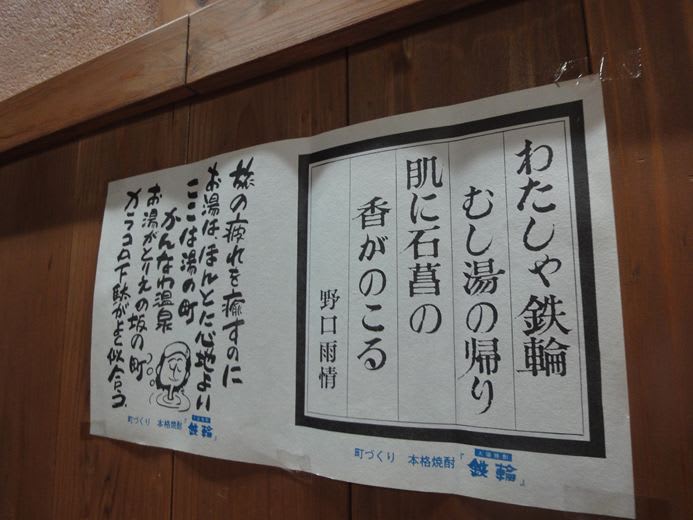 わたしゃ鉄輪
むし湯の帰り
肌に石菖の
香がのこる
野口雨情
町づくり 本格焼酎『鉄輪』
旅の疲れを癒すのに
お湯は、ほんとに心地よい
ここは湯の町
かんなわ温泉
お湯がとりえの坂の町
カラコロ下駄がよく似合う。
町づくり 本格焼酎『鉄輪』